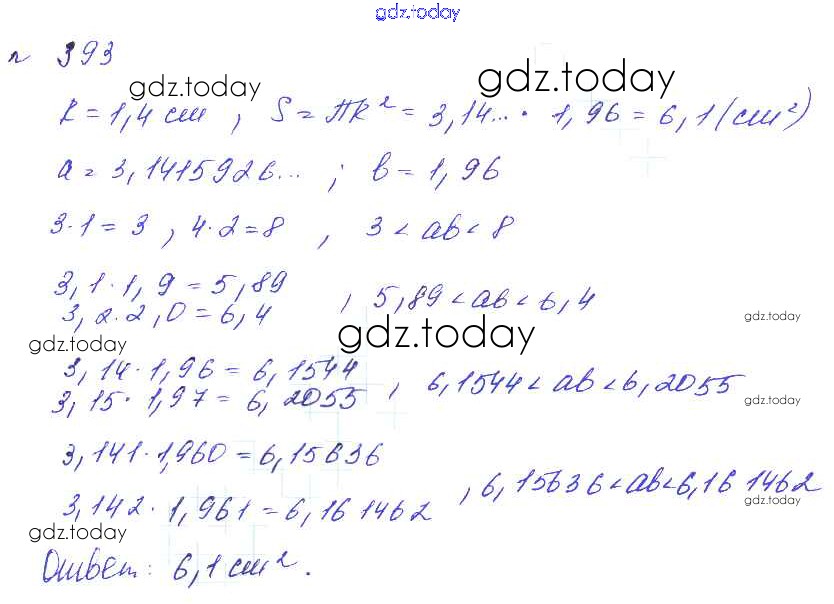 gdz.today
№ 393
gdz.today gdz.today
R = 1,4 см , S = ПR² = 3,14... · 1,96 = 6,1 (см²)
a = 3,1415926... ; b = 1,96
3·1 = 3 , 4·2 = 8 , 3 < ab < 8
3,1 · 1,9 = 5,89
3,2 · 2,0 = 6,4 , 5,89 < ab < 6,4
gdz.today gdz.today gdz.today
3,14 · 1,96 = 6,1544
3,15 · 1,97 = 6,2055 , 6,1544 < ab < 6,2055
gdz.today
3,141 · 1,960 = 6,15636
3,142 · 1,961 = 6,161462 , 6,15636 < ab < 6,161462
gdz.today gdz.today
Ответ: 6,1 см².